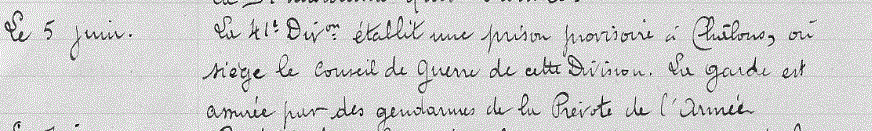 Le 5 juin. La 41e Divon établit une prison provisoire à Châlons, où
siège le Conseil de Guerre de cette Division. La garde est
assurée par des gendarmes de la Prévoté de l'Armée